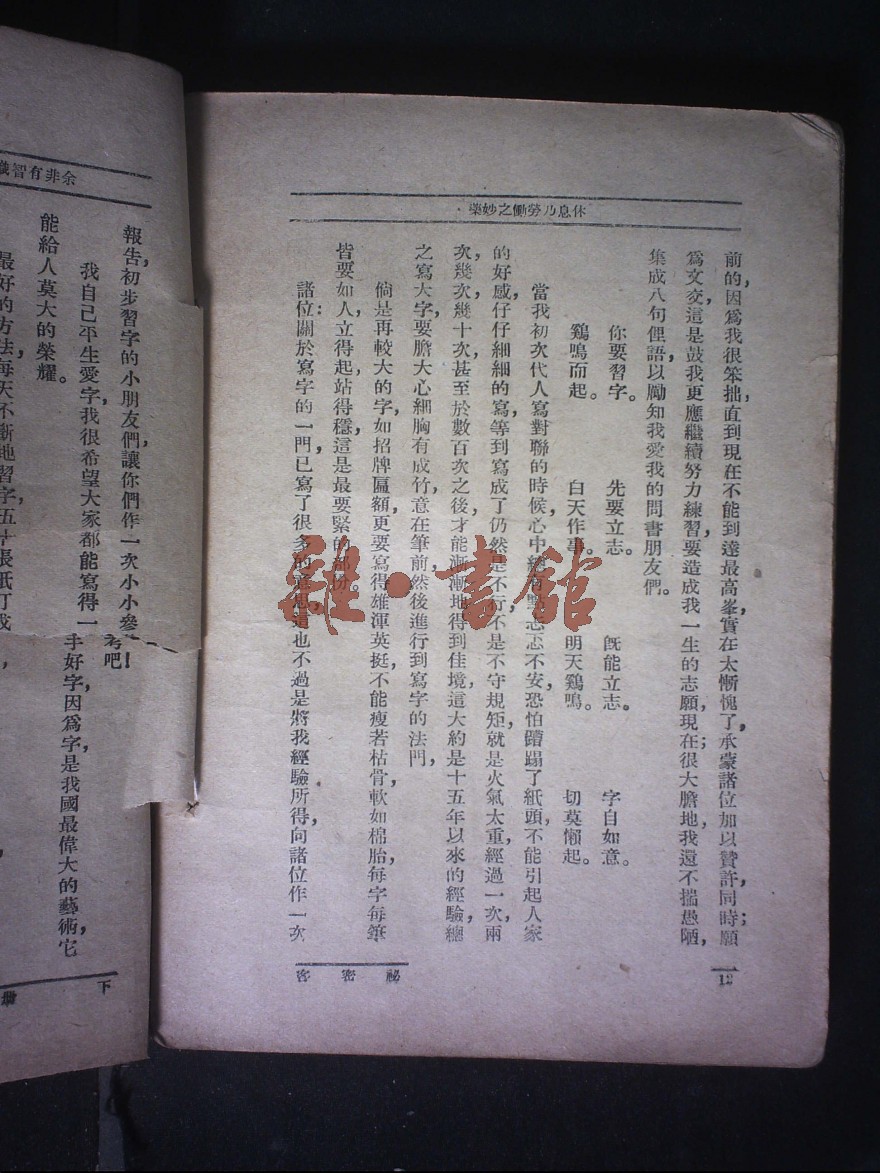 休息乃勞働之妙藥
前的,因爲我很笨拙,直到現在不能到達最高峯,實在太慚愧了,承蒙諸位加以贊許,同時願
爲文交,這是鼓我更應繼續努力練習,要造成我一生的志願;現在很大膽地,我還不揣愚陋,
集成八句俚語,以勵知我愛我的問書朋友們。
你要習字。 先要立志。 既能立志。 字自如意。
鷄鳴而起。 白天作事。 明天鷄鳴。 切莫懶起。
當我初次代人寫對聯的時候,心中總有點忐忑不安,恐怕蹧蹋了紙頭,不能引起人家
的好感,仔仔細細的寫,等到寫成了仍然是不行,不是不守規矩,就是火氣太重,經過一次,兩
次,幾次,幾十次,甚至於數百次之後,才能漸漸地得到佳境,這大約是十五年以來的經驗,總
之寫大字,要膽大心細,胸有成竹,意在筆前,然後進行到寫字的法門,
倘是再較大的字,如招牌匾額,更要寫得雄渾英挺,不能瘦若枯骨,軟如棉胎,每字每筆
皆要如人,立得起,站得穩,這是最要緊的部份。
諸位:關於寫字的一門,已寫了很多的意思,這也不過是將我經驗所得,向諸位作一次
12
祕密客
雜·書館
余非有智識
報告,初步習字的小朋友們,讓你們作一次小小參考吧!
我自己平生愛字,我很希望大家都能寫得一手好字,因爲字是我國最偉大的藝術,它
能給人莫大的榮耀。
最好的方法,每天不斷地習字,五十張紙訂成
下